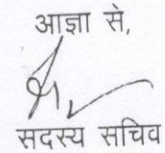 आज्ञा से,
सदस्य सचिव